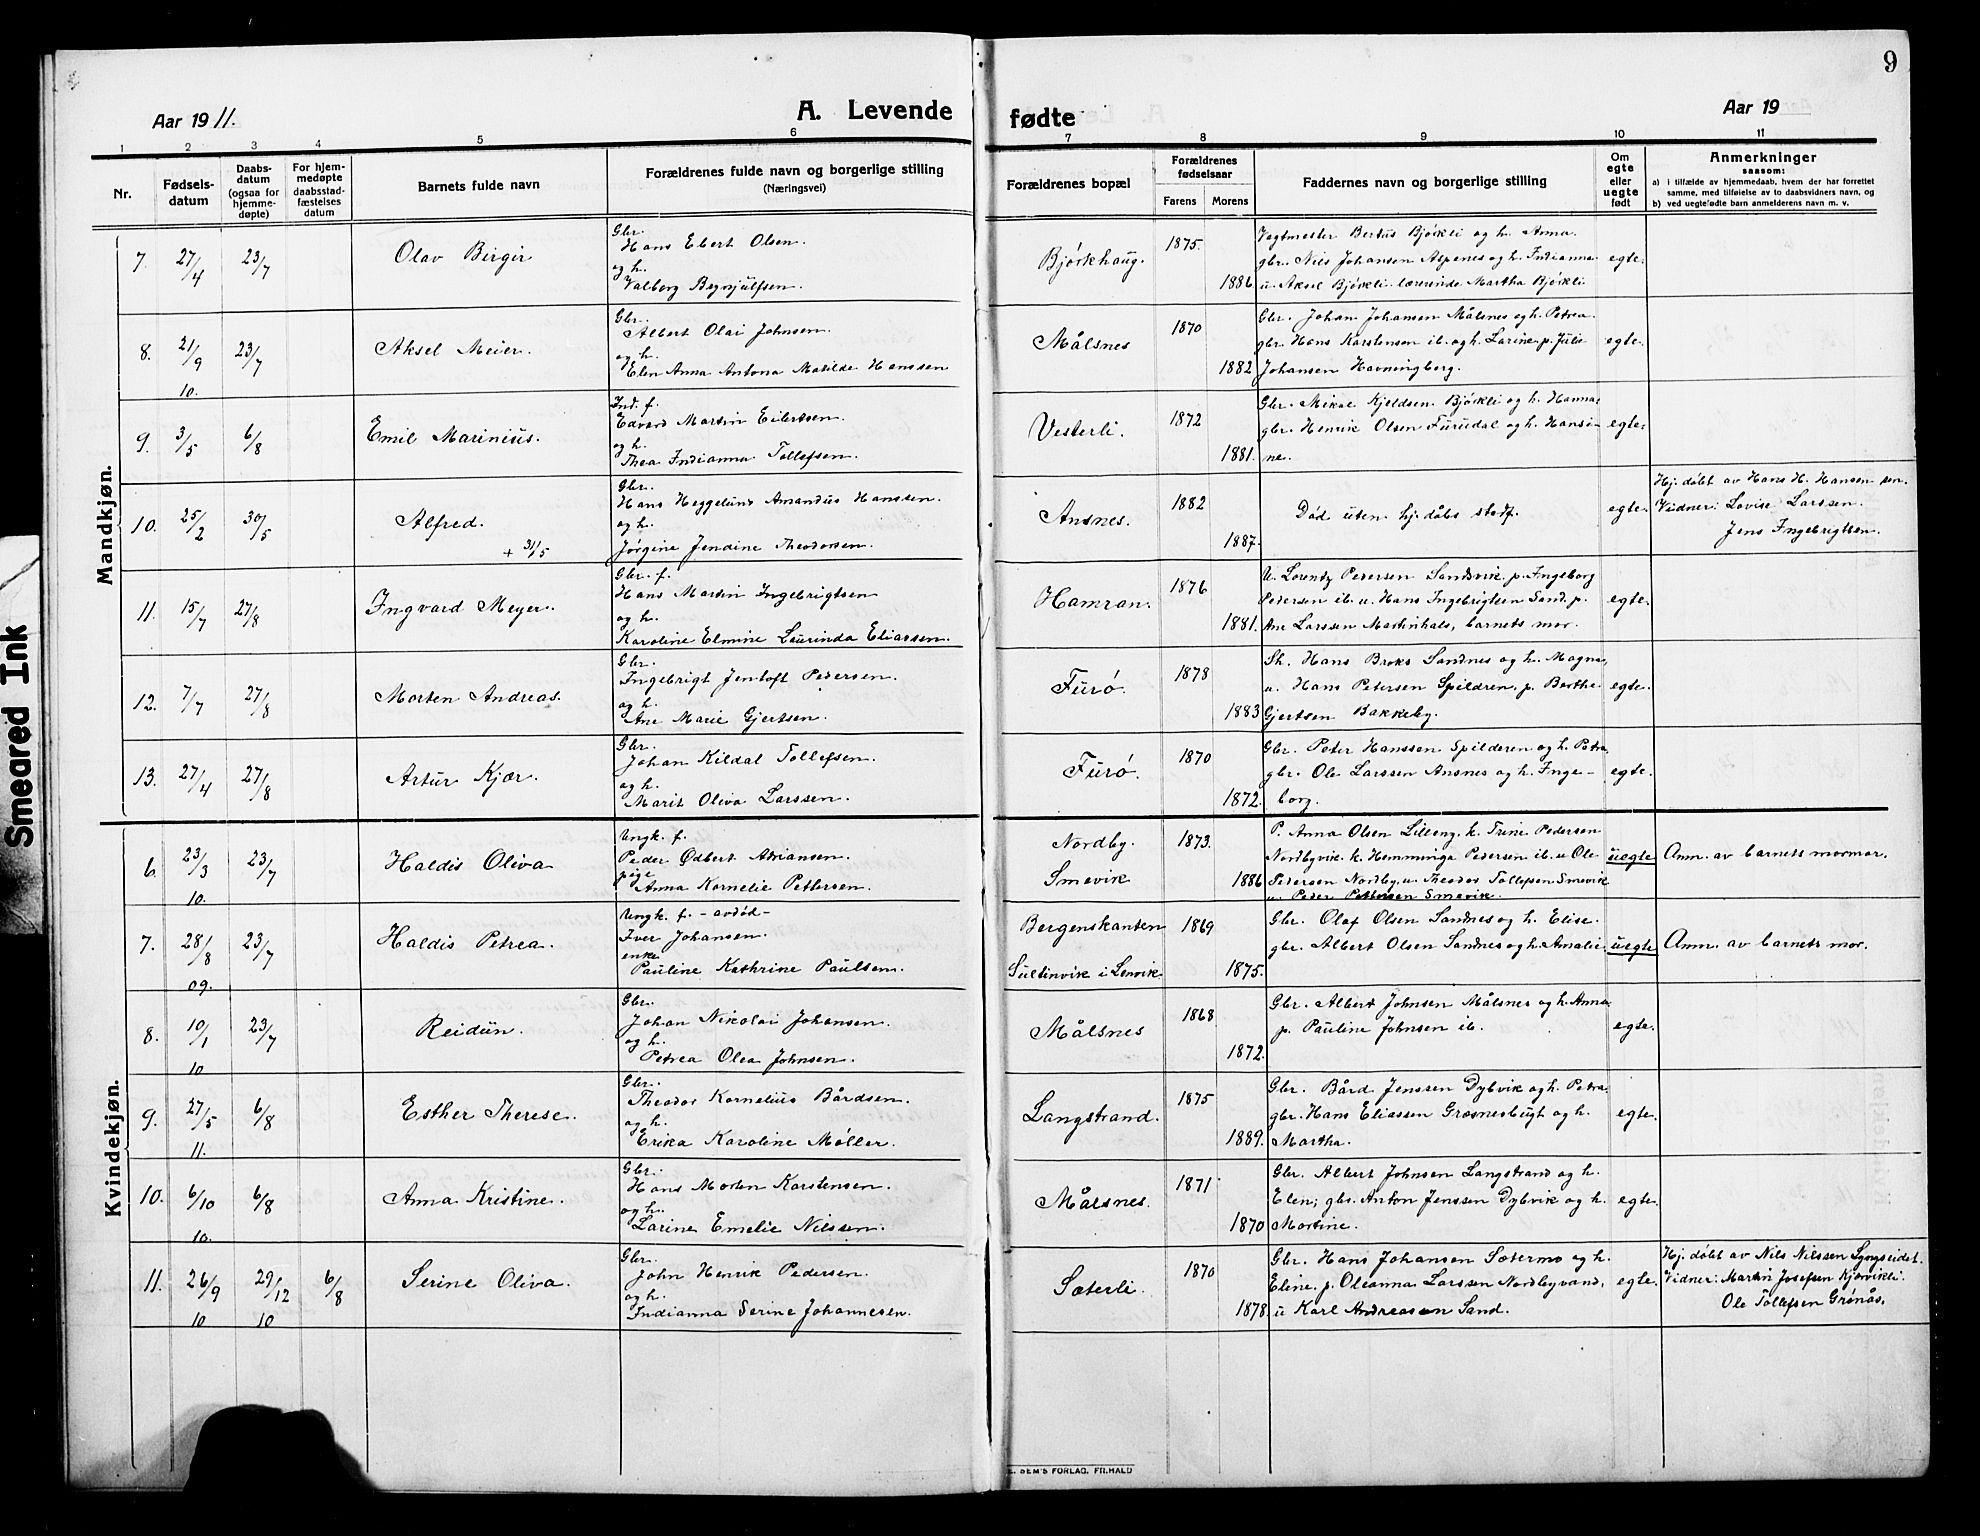 9
Aar 1911.
A. Levende
fødte
Aar 19
1 2 3 4 5 6 7 8 9 10 11
Nr.
Fødsels-
datum
Daabs-
datum
(ogsaa for
hjemme-
døpte)
For hjem-
medøpte
daabsstad-
fæstelses
datum
Barnets fulde navn
Forældrenes fulde navn og borgerlige stilling
(Næringsvei)
Forældrenes bopæl
Forældrenes
fødselsaar
Farens Morens
Faddernes navn og borgerlige stilling
Om
egte
eller
uegte
født
Anmerkninger
saasom:
a) i tilfælde av hjemmedaab, hvem der har forrettet
samme, med tilføielse av to daabsvidners navn, og
b) ved uegtefødte barn anmelderens navn m. v.
Mandkjøn.
7. 27/4 23/7 Olav Birgir
Gbr.
Hans Ebert Olsen.
og h.
Valborg Brynjulfsen.
Bjørkhaug. 1875. 1886
Vegtmester Bertus Bjørkli og h. Anna.
gbr. Nils Johansen Aspenes og h. Indianna
u. Aksel Bjørkli. lærerinde Martha Bjørkli
egte.
8. 21/9 10. 23/7 Aksel Meier.
Gbr.
Albert Olai Johnsen.
og h.
Elen Anna Antona Matilde Hanssen
Målsnes 1870 1882
Gbr. Johan Johansen Målsnes og h. Petrea
gbr. Hans Karstensen ib. og h. Larine p. Julie
Johansen Havningberg.
egte.
9. 3/5 6/8 Emil Marinius.
Ind. f.
Edvard Martin Eilertsen.
og h.
Thea Indianna Tollefsen.
Vesterli. 1872 1881.
Gbr. Mikal Kjeldsen Bjørkli og h. Hanna
gbr. Henrik Olsen Furudal og h. Hansi-
ne.
egte.
10. 25/2 30/5 Alfred.
+ 31/5
Gbr.
Hans Heggelund Amandus Hanssen.
og h.
Jørgine Jendine Theodorsen.
Ansnes. 1882 1887.
Død uten hj. døbs stadf.
egte.
Hj. døbt av Hans H. Hansen sen.
Vidner: Lovise Larssen.
Jens Ingebrigtsen.
11. 15/7 27/8 Ingvard Meyer.
Gbr. f.
Hans Martin Ingebrigtsen
og h.
Karoline Elmine Laurinda Eliassen.
Hamran. 1876 1881.
U. Lorentz Pedersen Sandsvik. p. Ingeborg
Pedersen ib. u. Hans Ingebrigtsen Sand. p.
Ane Larssen Martinhals, barnets mor.
egte.
12. 7/7 27/8 Morten Andreas.
Gbr.
Ingebrigt Jentoft Pedersen.
og h.
Ane Marie Gjertsen.
Furø. 1878 1883
Sh. Hans Broks Sandnes og h. Magna,
u. Hans Petersen Spildren. p. Berthe
Gjertsen Bakkeby.
egte.
13. 27/4 27/8 Artur Kjær.
Gbr.
Johan Kildal Tollefsen.
og h.
Marit Oliva Larssen.
Furø. 1870 1872.
Gbr. Peter Hanssen Spilderen og h. Petra
gbr. Ole Larssen Ansnes og h. Inge-
borg.
egte.
Kvindekjøn.
6. 23/3 10. 23/7 Haldis Oliva
Ungk. f.
Peder Odbert Adriansen.
pige
Anna Kornelie Pettersen.
Nordby.
Smevik
1873. 1886
P. Anna Olsen Lilleng. k. Trine Pedersen
Nordbyvik. k. Hemminga Pedersen ib. u. Ole
Pedersen Nordby. u. Theodor Tollefsen Smevik
u. Peder Pettersen Smevik.
uegte
Anm. av barnets mormor.
7. 28/8 09. 23/7 Haldis Petrea.
Ungk. f. - avdød -
Iver Johansen.
enke
Pauline Kathrine Paulsen.
Bergenskanten
Sultinvik i Lenvik
1869 1875.
Gbr. Olaf Olsen Sandnes og h. Elise.
gbr. Albert Olsen Sandnes og h. Amalie.
uegte
Anm. av barnets mor.
8. 10/1 10 23/7 Reidun.
Gbr.
Johan Nikolai Johansen.
og h.
Petrea Olea Johnsen.
Målsnes 1868 1872.
Gbr. Albert Johnsen Målsnes og h. Anna
p. Pauline Johnsen ib.
egte.
9. 27/5 11. 6/8 Esther Therese.
Gbr.
Theodor Kornelius Bårdsen.
og h.
Erika Karoline Møller.
Langstrand. 1875 1889.
Gbr. Bård Jenssen Dybvik og h. Petra
gbr. Hans Eliassen Grøsnesbugt og h.
Martha.
egte.
10. 6/10 10. 6/8 Anna Kristine.
Gbr.
Hans Morten Karstensen.
og h.
Larine Emelie Nilssen.
Målsnes. 1871 1870
Gbr. Albert Johnsen Langstrand og h.
Elen; gbr. Anton Jenssen Dybvik og h.
Martine.
egte.
11. 26/9 10 29/12 10 6/8 Serine Oliva.
Gbr.
John Henrik Pedersen.
og h.
Indianna Serine Johannesen.
Sæterli. 1870 1878.
Gbr. Hans Johansen Sætermo og h.
Eline. p. Oleanna Larssen Nordbyvand.
u Karl Andreassen Sand.
egte.
Hj. døbt av Nils Nilssen Lyngseidet.
Vidner: Martin Josefsen Kjørvikli.
Ole Tollefsen Grønås.
SEM'S FORLAG, FR.HALD
Smeared Ink